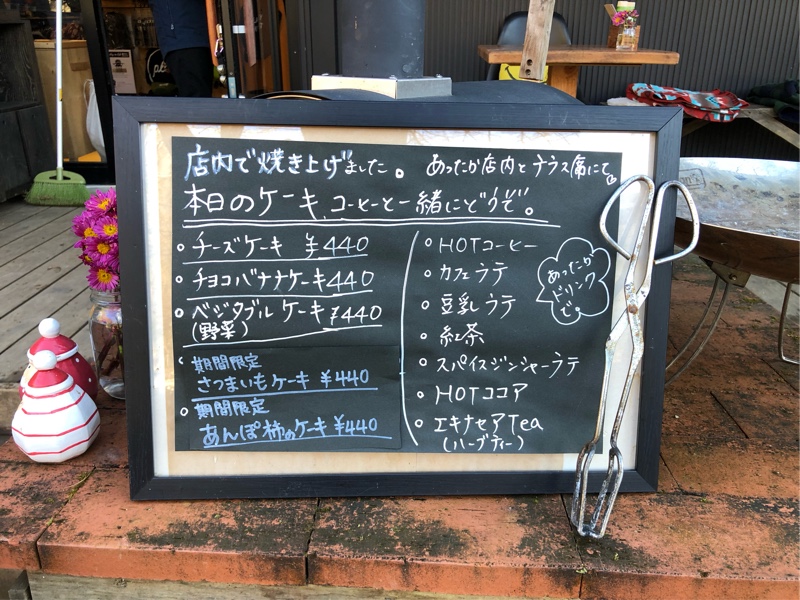 店内で焼き上げました。 あったか店内とテラス席にて。
本日のケーキ、コーヒーと一緒にどうぞ。
○ チーズケーキ ¥440
○ チョコバナナケーキ 440
○ ベジタブルケーキ ¥440
(野菜)
期間限定
さつまいもケーキ ¥440
○ 期間限定
あんぽ柿のケーキ ¥440
○ HOTコーヒー
○ カフェラテ
○ 豆乳ラテ
○ 紅茶
○ スパイスジンジャーラテ
○ HOTココア
○ エキナセアTea
(ハーブティー)
あったか
ドリンク
で